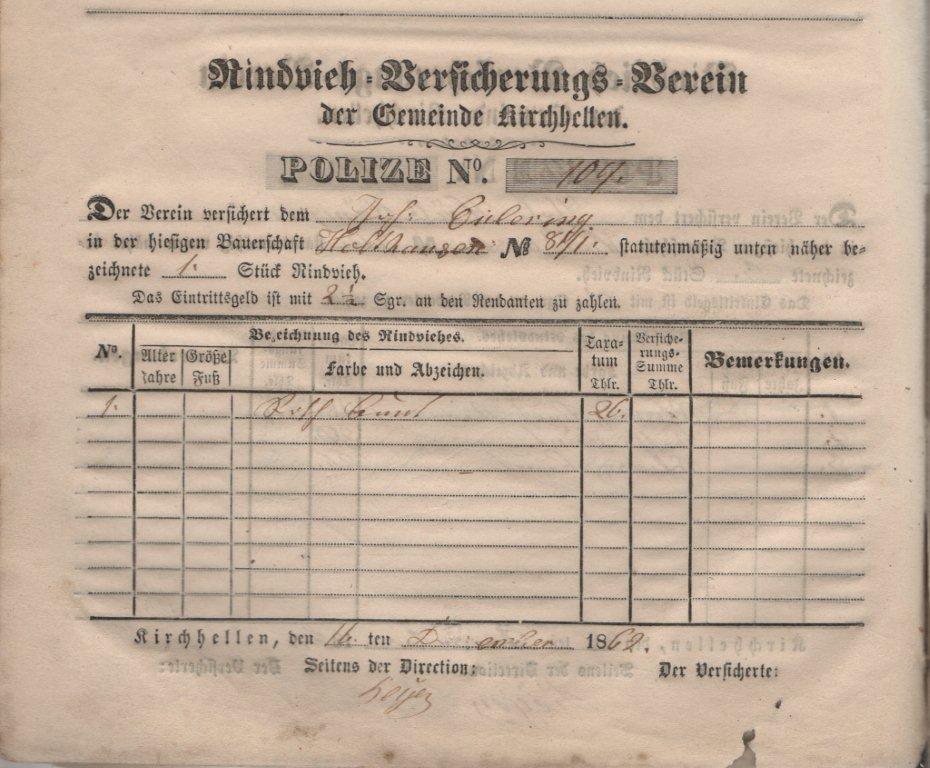 Rindvieh-Versicherungs-Verein
der Gemeinde Kirchhellen.
POLIZE No. 107.
Der Verein versichert dem Joh: Eulering
in der hiesigen Bauerschaft Holthausen No 81/1. statutenmäßig unten näher be-
zeichnete 1. Stück Rindvieh.
Das Eintrittsgeld ist mit 2 1/2 Sgr. an den Rendanten zu zahlen.
No. Bezeichnung des Rindviehes. Taxa-tum Thlr. Versiche-rungs-Summe Thlr. Bemerkungen.
Alter Jahre Größe Fuß Farbe und Abzeichen.
1. Roth bunt 26.
Kirchhellen, den 16. ten December 1862.
Seitens der Direction: Der Versicherte: